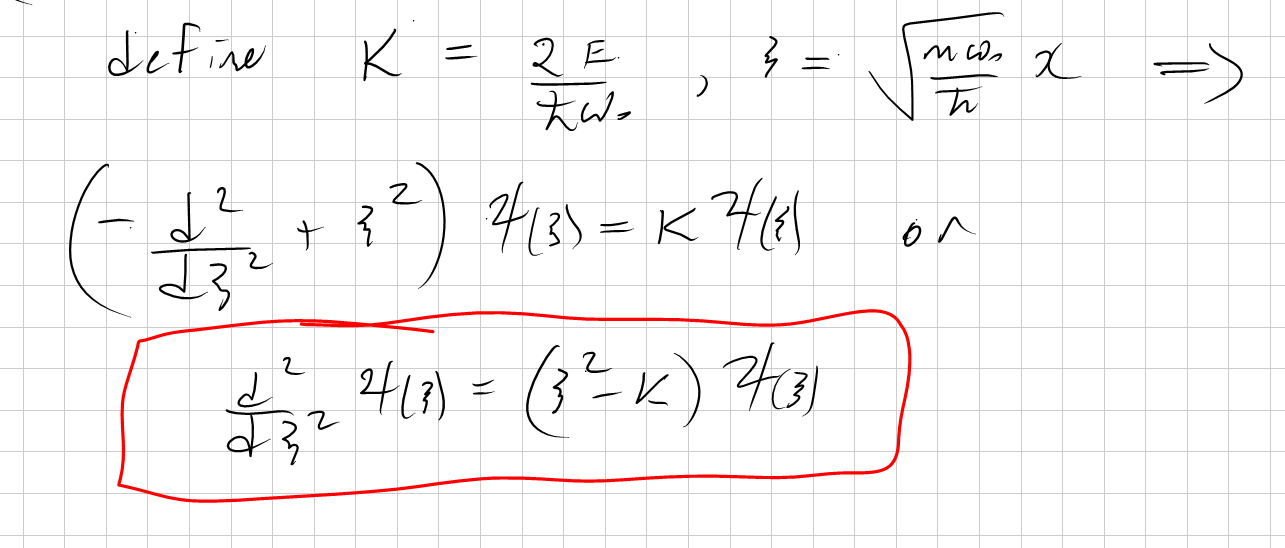 define K = 2E/ħω₀ , ξ = √(mω₀/ħ) x ⟹
(− d²/dξ² + ξ²) ψ(ξ) = K ψ(ξ) or
d²/dξ² ψ(ξ) = (ξ² − K) ψ(ξ)